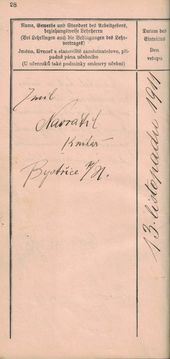 28
Name, Gewerbe und Standort des Arbeitgebers,
beziehungsweise Lehrherrn
(Bei Lehrlingen auch die Bedingungen des Lehr-
vertrages)
Jméno, živnost a stanoviště zaměstnavatele, pří-
padně pána učebního
(U učenníků také podmínky smlouvy učební)
Datum des
Eintrittes
Den
vstupu
Emil
Navrátil
Kovář
Bystřice p/H.
13. listopadu 1911